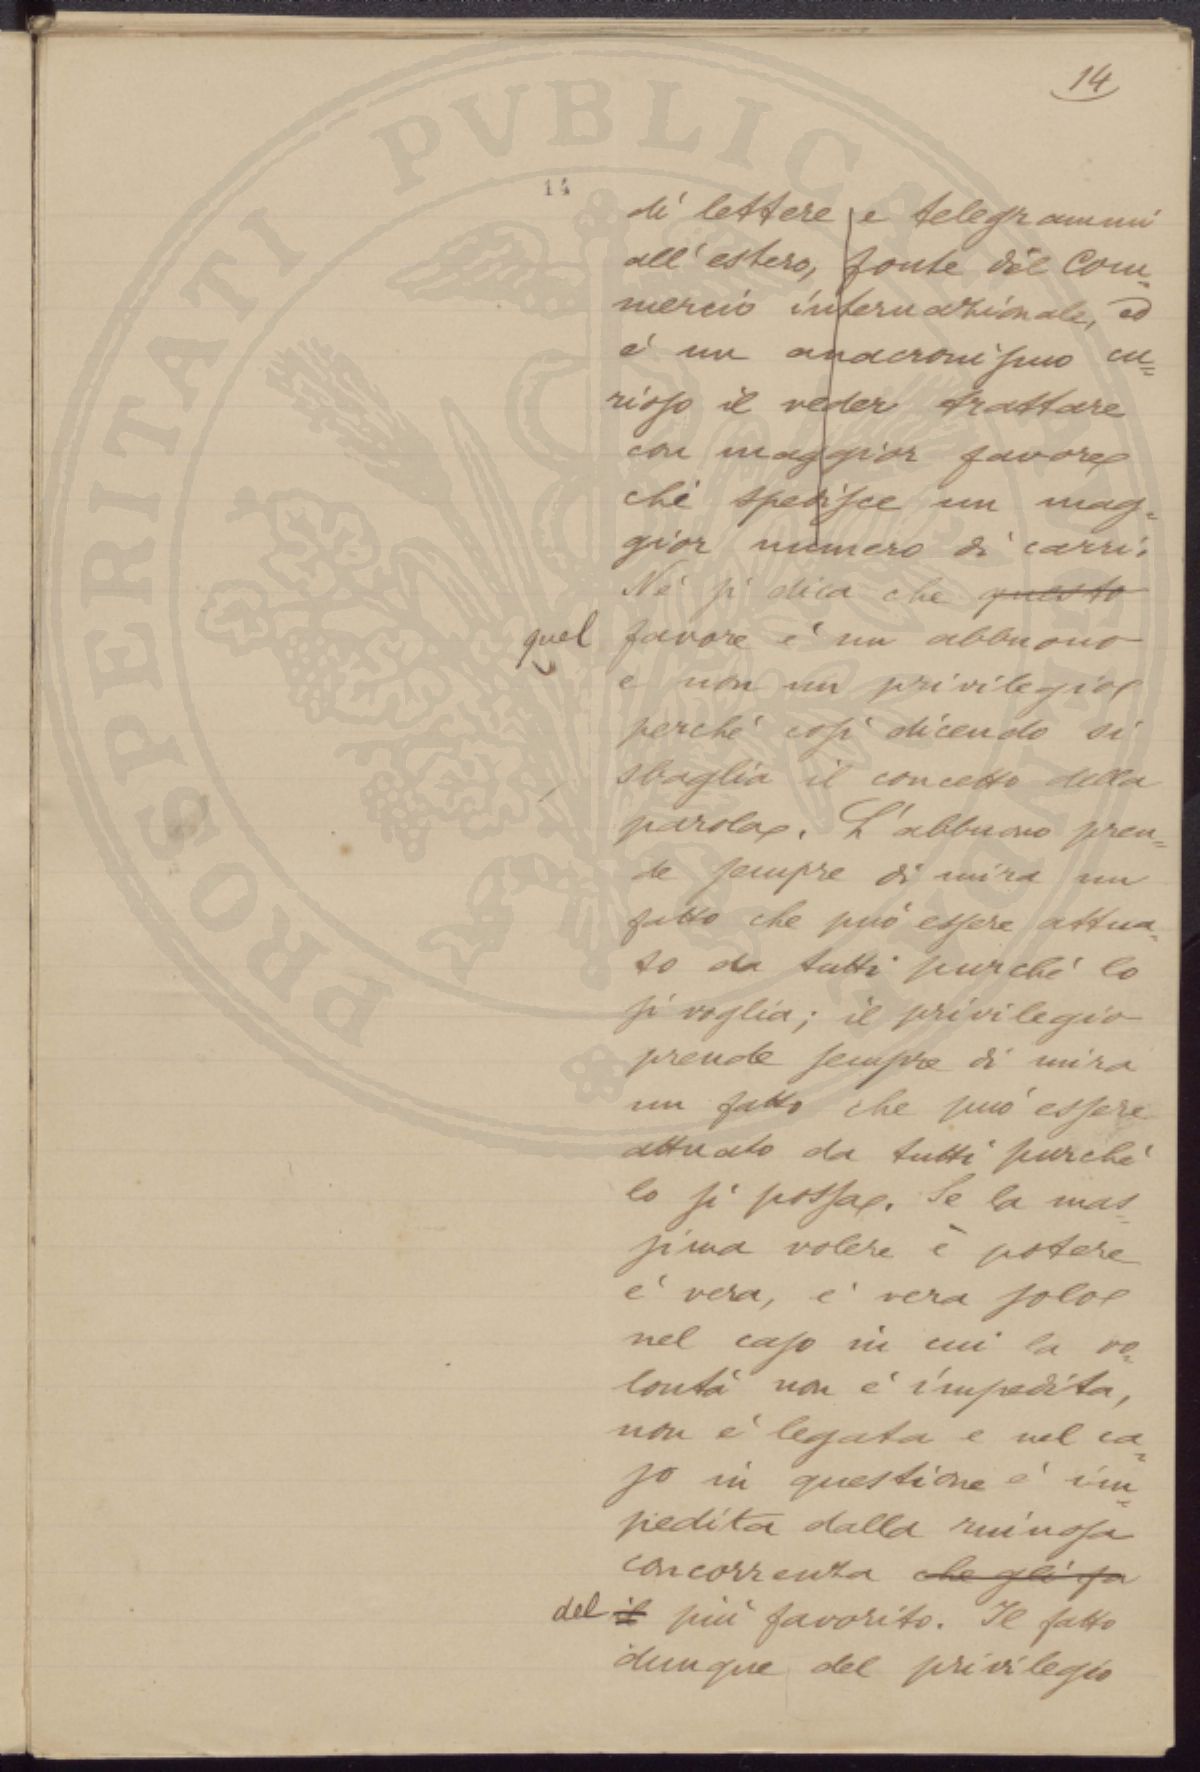 14
14
di lettere e telegrammi
all'estero, fonte del Com-
mercio internazionale, ed
è un anacronismo cu=
rioso il veder trattare
con maggior favore
chi spedisce un mag-
gior numero di carri.
Nè si dica che questo
quel favore è un abbuono
e non un privilegio
perchè così dicendo si
sbaglia il concetto della
parola. L'abbuono pren=
de sempre di mira un
fatto che può essere attua-
to da tutti purchè lo
si voglia; il privilegio
prende sempre di mira
un fatto che può essere
attuato da tutti purchè
lo si possa. Se la mas-
sima volere è potere
è vera, è vera solo
nel caso in cui la vo-
lontà non è impedita,
non è legata e nel ca-
so in questione è im-
pedita dalla ruinosa
concorrenza che gli fa
del il più favorito. Il fatto
dunque del privilegio
PROSPERITATI PVBLICAE